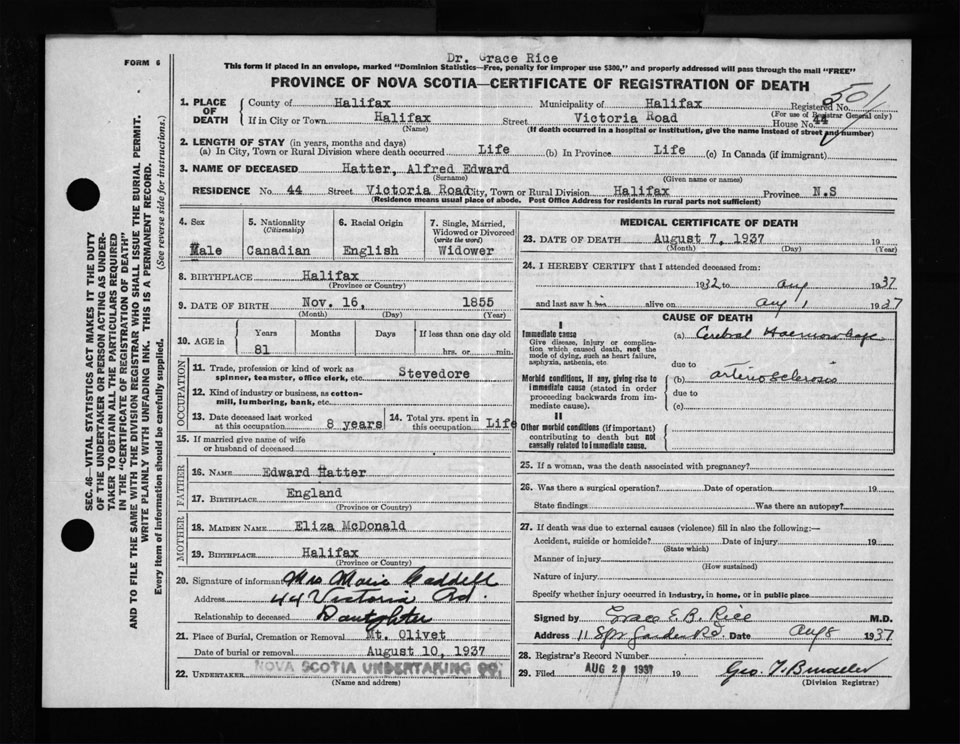 FORM 6
Dr. Grace Rice
This form if placed in an envelope, marked "Dominion Statistics—Free, penalty for improper use $300," and properly addressed will pass through the mail "FREE"
PROVINCE OF NOVA SCOTIA—CERTIFICATE OF REGISTRATION OF DEATH
1. PLACE OF DEATH
County of Halifax Municipality of Halifax Registered No. 501
(For use of Registrar General only)
If in City or Town Halifax Street Victoria Road House No. 44
(Name) (If death occurred in a hospital or institution, give the name instead of street and number)
2. LENGTH OF STAY (in years, months and days)
(a) In City, Town or Rural Division where death occurred Life (b) In Province Life (c) In Canada (if immigrant)
3. NAME OF DECEASED Hatter, Alfred Edward
(Surname) (Given name or names)
RESIDENCE No. 44 Street Victoria Road City, Town or Rural Division Halifax Province N.S
(Residence means usual place of abode. Post Office Address for residents in rural parts not sufficient)
4. Sex
Male
5. Nationality
(Citizenship)
Canadian
6. Racial Origin
English
7. Single, Married,
Widowed or Divorced
(write the word)
Widower
8. BIRTHPLACE Halifax
(Province or Country)
9. DATE OF BIRTH Nov. 16, 1855
(Month) (Day) (Year)
10. AGE in
Years Months Days If less than one day old
81 hrs. or min.
OCCUPATION
11. Trade, profession or kind of work as
spinner, teamster, office clerk, etc. Stevedore
12. Kind of industry or business, as cotton-
mill, lumbering, bank, etc.
13. Date deceased last worked
at this occupation 8 years
14. Total yrs. spent in
this occupation Life
15. If married give name of wife
or husband of deceased
FATHER
16. Name Edward Hatter
17. Birthplace England
(Province or Country)
MOTHER
18. Maiden Name Eliza McDonald
19. Birthplace Halifax
(Province or Country)
20. Signature of informant Mrs Marie
Address 44 Victoria Rd.
Relationship to deceased Daughter
21. Place of Burial, Cremation or Removal Mt. Olivet
Date of burial or removal August 10, 1937
22. Undertaker NOVA SCOTIA UNDERTAKING CO.
(Name and address)
MEDICAL CERTIFICATE OF DEATH
23. DATE OF DEATH August 7, 1937 19
(Month) (Day) (Year)
24. I HEREBY CERTIFY that I attended deceased from:
1932 to Aug 1937
and last saw him alive on Aug 1 1937
CAUSE OF DEATH
I
Immediate cause
Give disease, injury or complica-
tion which caused death, not the
mode of dying, such as heart failure,
asphyxia, asthenia, etc
(a) Cerebral Haemorrhage
due to
Morbid conditions, if any, giving rise to
immediate cause (stated in order
proceeding backwards from im-
mediate cause).
(b) arterio sclerosis
due to
(c)
II
Other morbid conditions (if important)
contributing to death but not
causally related to immediate cause.
25. If a woman, was the death associated with pregnancy?
26. Was there a surgical operation? Date of operation 19
State findings Was there an autopsy?
27. If death was due to external causes (violence) fill in also the following:—
Accident, suicide or homicide? Date of injury 19
(State which)
Manner of injury
(How sustained)
Nature of injury
Specify whether injury occurred in industry, in home, or in public place
Signed by Grace E. B. Rice M.D.
Address 11 Spr Garden Rd. Date Aug 8 1937
28. Registrar's Record Number
29. Filed AUG 2 1937 19
(Division Registrar)
SEC. 46—VITAL STATISTICS ACT MAKES IT THE DUTY
OF THE UNDERTAKER OR PERSON ACTING AS UNDER-
TAKER TO OBTAIN ALL THE PARTICULARS REQUIRED
IN THE "CERTIFICATE OF REGISTRATION OF DEATH"
AND TO FILE THE SAME WITH THE DIVISION REGISTRAR WHO SHALL ISSUE THE BURIAL PERMIT.
WRITE PLAINLY WITH UNFADING INK. THIS IS A PERMANENT RECORD.
Every item of information should be carefully supplied. (See reverse side for instructions.)